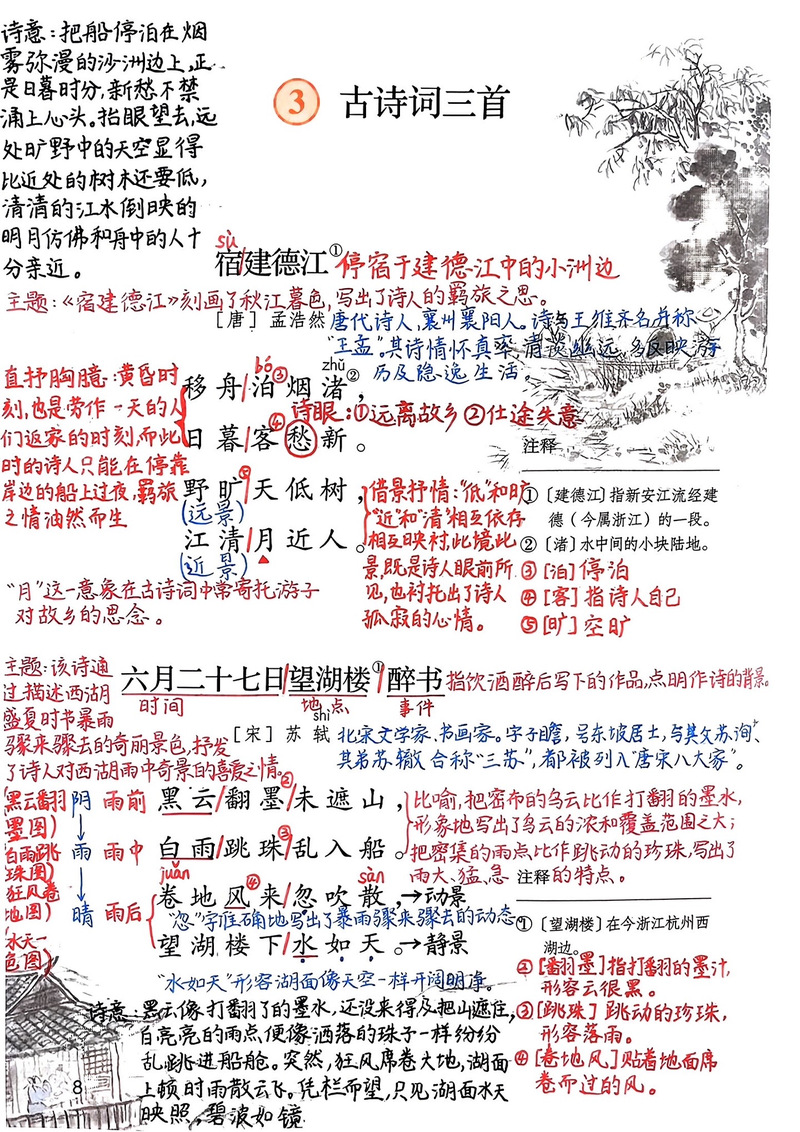 诗意：把船停泊在烟
雾弥漫的沙洲边上，正
是日暮时分，新愁不禁
涌上心头。抬眼望去，远
处旷野中的天空显得
比近处的树木还要低，
清清的江水倒映的
明月仿佛和舟中的人十
分亲近。
3 古诗词三首
sù
宿/建德江① 停宿于建德江中的小洲边
主题：《宿建德江》刻画了秋江暮色，写出了诗人的羁旅之思。
［唐］孟浩然 唐代诗人，襄州襄阳人。诗与王维齐名并称
“王孟”。其诗情怀真率，清淡幽远，多反映游
历及隐逸生活。
直抒胸臆：黄昏时
刻，也是劳作一天的人
们返家的时刻，而此
时的诗人只能在停靠
岸边的船上过夜，羁旅
之情油然而生
bó③ zhǔ
移舟/泊烟渚②，
诗眼：①远离故乡②仕途失意
日暮/客④愁新。
野旷⑤/天低树，
(远景)
江清/月近人。
(近景)
借景抒情：“低”和旷
“近”和“清”相互依存
相互映衬，此境此
景，既是诗人眼前所
见，也衬托出了诗人
孤寂的心情。
“月”这一意象在古诗词中常寄托游子
对故乡的思念。
注释
①〔建德江〕指新安江流经建
德（今属浙江）的一段。
②〔渚〕水中间的小块陆地。
③[泊]停泊
④[客]指诗人自己
⑤[旷]空旷
主题：该诗通
过描述西湖
盛夏时节暴雨
骤来骤去的奇丽景色，抒发
了诗人对西湖雨中奇景的喜爱之情。
六月二十七日/望湖楼①/醉书 指饮酒醉后写下的作品，点明作诗的背景。
时间 地点 事件
shì
［宋］苏轼 北宋文学家、书画家。字子瞻，号东坡居士，与其父苏洵、
其弟苏辙合称“三苏”，都被列入“唐宋八大家”。
黑云翻
墨图)
白雨跳
珠图)
狂风卷
地图)
水天一
色图)
阴 雨前
雨 雨中
晴 雨后
黑云/翻墨②/未遮山，
白雨/跳珠③/乱入船。
juǎn sàn
卷地风④来/忽吹散，→动景
“忽”字准确地写出了暴雨骤来骤去的动态。
望湖楼下/水如天。→静景
“水如天”形容湖面像天空一样开阔明净。
比喻，把密布的乌云比作打翻的墨水，
形象地写出了乌云的浓和覆盖范围之大；
把密集的雨点比作跳动的珍珠，写出了
雨大、猛、急的特点。
注释
①〔望湖楼〕在今浙江杭州西
湖边。
②[翻墨]指打翻的墨汁，
形容云很黑。
③[跳珠]跳动的珍珠，
形容落雨。
④[卷地风]贴着地面席
卷而过的风。
诗意：黑云像打翻了的墨水，还没来得及把山遮住，
白亮亮的雨点便像洒落的珠子一样纷纷
乱跳进船舱。突然，狂风席卷大地，湖面
上顿时雨散云飞。凭栏而望，只见湖面水天
映照，碧波如镜
8